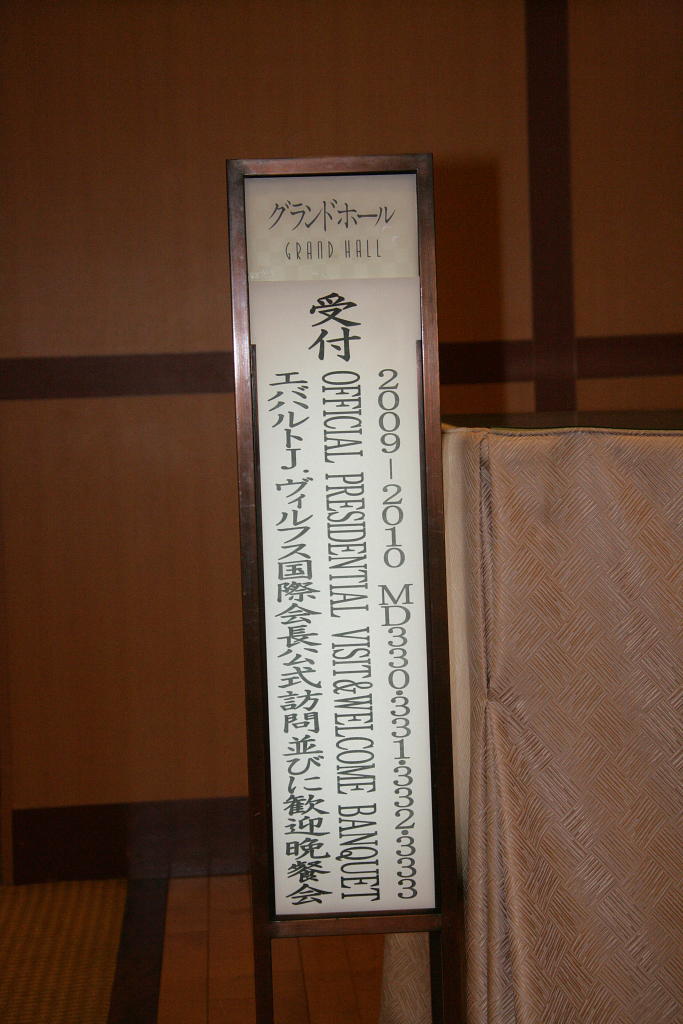 グランドホール
GRAND HALL
受付
2009-2010 MD330.331.332.333
OFFICIAL PRESIDENTIAL VISIT&WELCOME BANQUET
エバハルトJ.ヴィルフス国際会長公式訪問並びに歓迎晩餐会